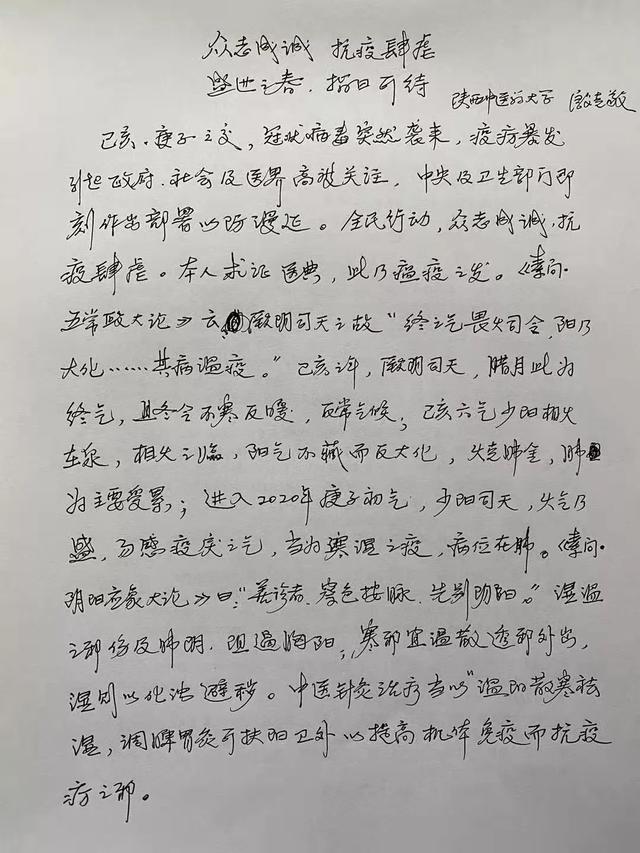 众志成诚 抗疫肆虐
盛世之春，指日可待
陕西中医药大学 殷克敬
己亥·庚子之交，冠状病毒突然袭来，疫疠暴发
引起政府、社会及医界高度关注，中央及卫生部门即
刻作出部署以防漫延。全民行动，众志成诚，抗
疫肆虐。本人求证医典，此乃瘟疫之发。《素问·
五常政大论》云 厥阴司天之故“终之气畏火司令，阳乃
大化……其病温疫。”己亥之年，厥阴司天，腊月此为
终气，且冬令不寒反暖，反常气候；己亥六气少阳相火
在泉，相火之临，阳气不藏而反大化，火克肺金，肺
为主要受累；进入2020年庚子初气，少阳司天，火气乃
盛，易感疫戾之气，当为寒湿之疫，病位在肺。《素问·
阴阳应象大论》曰：“善诊者，察色按脉，先别阴阳。”湿温
之邪伤及肺阴，阻遏胸阳，寒邪宜温散透邪外出，
湿则以化浊避秽。中医针灸治疗当以“温阳散寒祛
湿，调脾胃灸可扶阳卫外以提高机体免疫而抗疫
疠之邪。